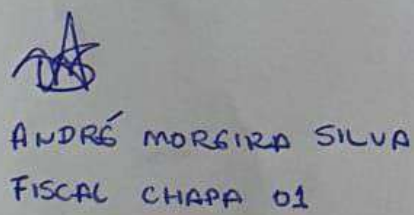 ANDRÉ MOREIRA SILVA
FISCAL CHAPA 01